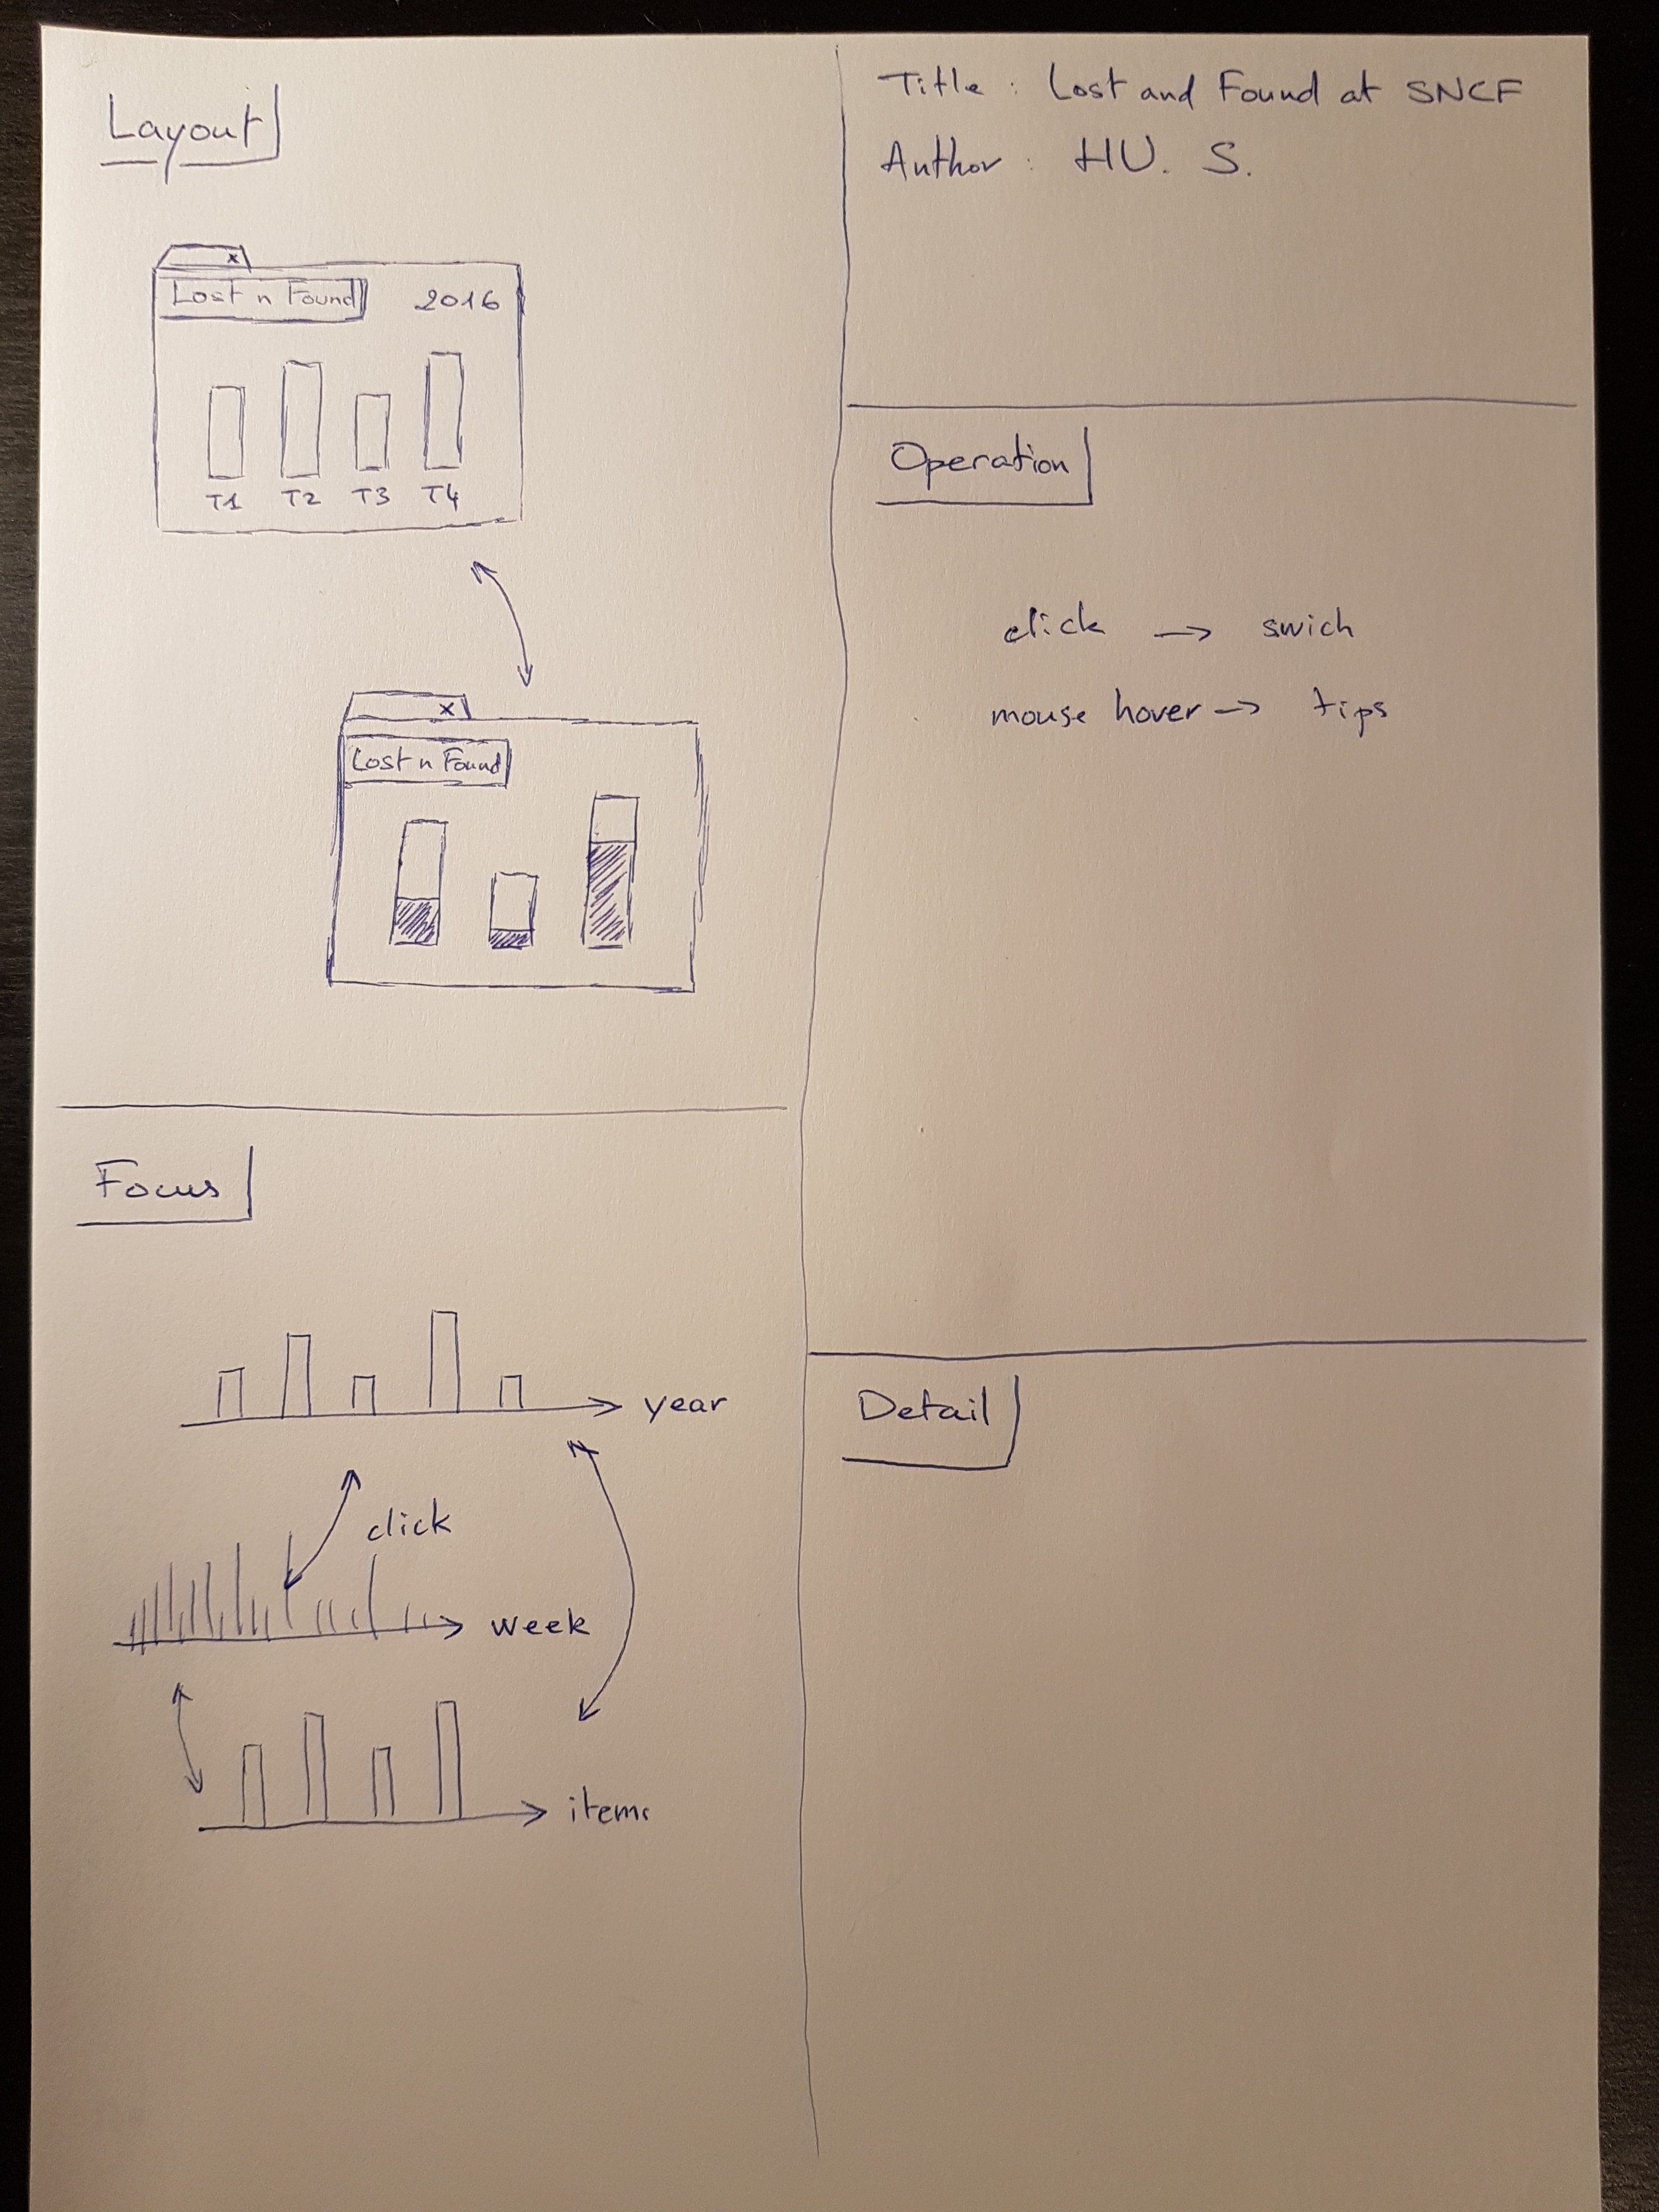 Layout
x
Lost n Found 2016
T1 T2 T3 T4
x
Lost n Found
Focus
year
click
week
items
Title : Lost and Found at SNCF
Author : HU. S.
Operation
click -> swich
mouse hover -> tips
Detail